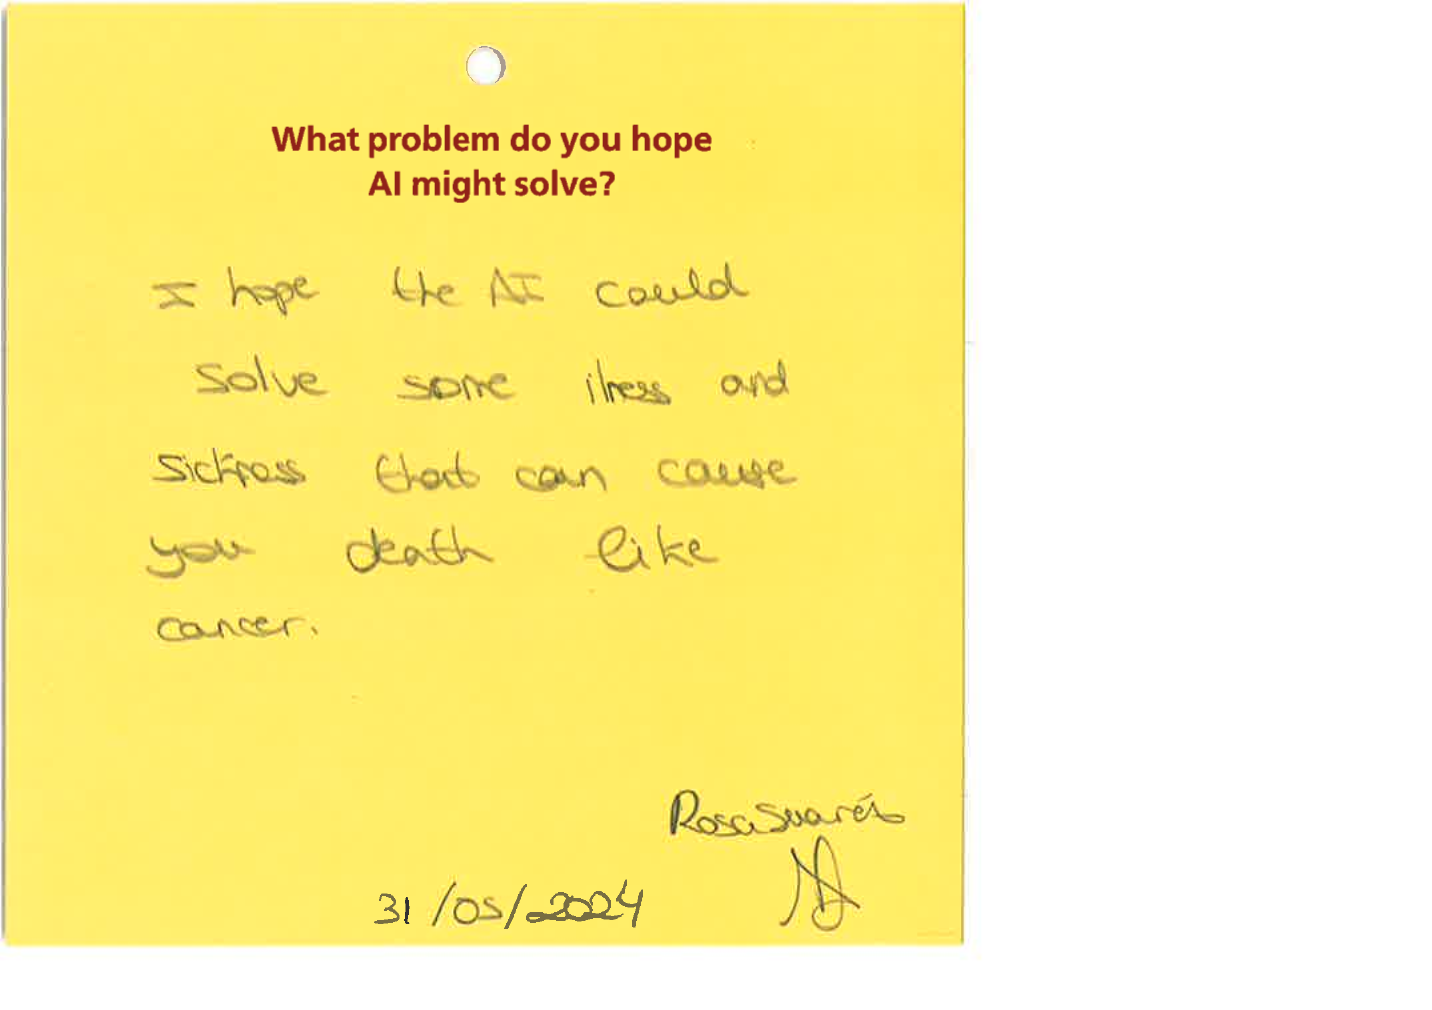 What problem do you hope
AI might solve?
I hope the AI could
solve some ilness and
sickness that can cause
you death like
cancer.
Rosa Suaréz
31/05/2024